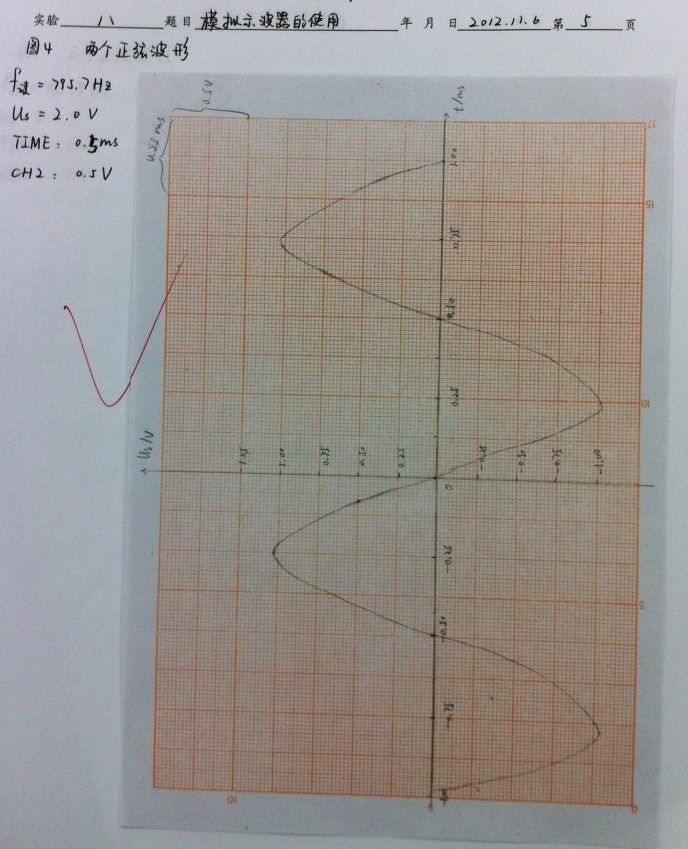 实验 八 题目 模拟示波器的使用 年 月 日 2012.11.6 第 5 页
图4 两个正弦波形
f读 = 795.7Hz
Us = 2.0 V
TIME: 0.5ms
CH2: 0.5V
0.5V
0.25ms
t/ms
17
1.00
15
0.75
0.50
10
0.25
Us/V
1.25
1.00
0.75
0.50
0.25
0
-0.25
-0.50
-0.75
-1.00
-0.25
5
-0.50
-0.75
10
5
0